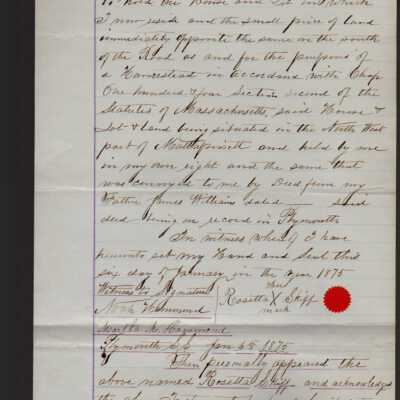 to hold the House and Lot in which
I now reside and the small piece of land
immediately opposite the same on the south
of the Road as and for the purposes of
a Homestead in accordance with Chap
One hundred & four Section second of the
Statutes of Massachusetts, said House &
Lot & Land being situated in the North West
part of Mattapoisett and held by me
in my own right and the same that
was conveyed to me by Deed from my
Father James Williams dated said
deed being on record in Plymouth
In witness whereof I have
hereunto set my Hand and Seal this
six day of January in the year 1875
Witness to Signature
her
Rosetta X Skiff
mark
Noah Hammond
Martha A. Hammond
Plymouth S.S. Jan 6th 1875
Then personally appeared the
above named Rosetta Skiff and acknowledged